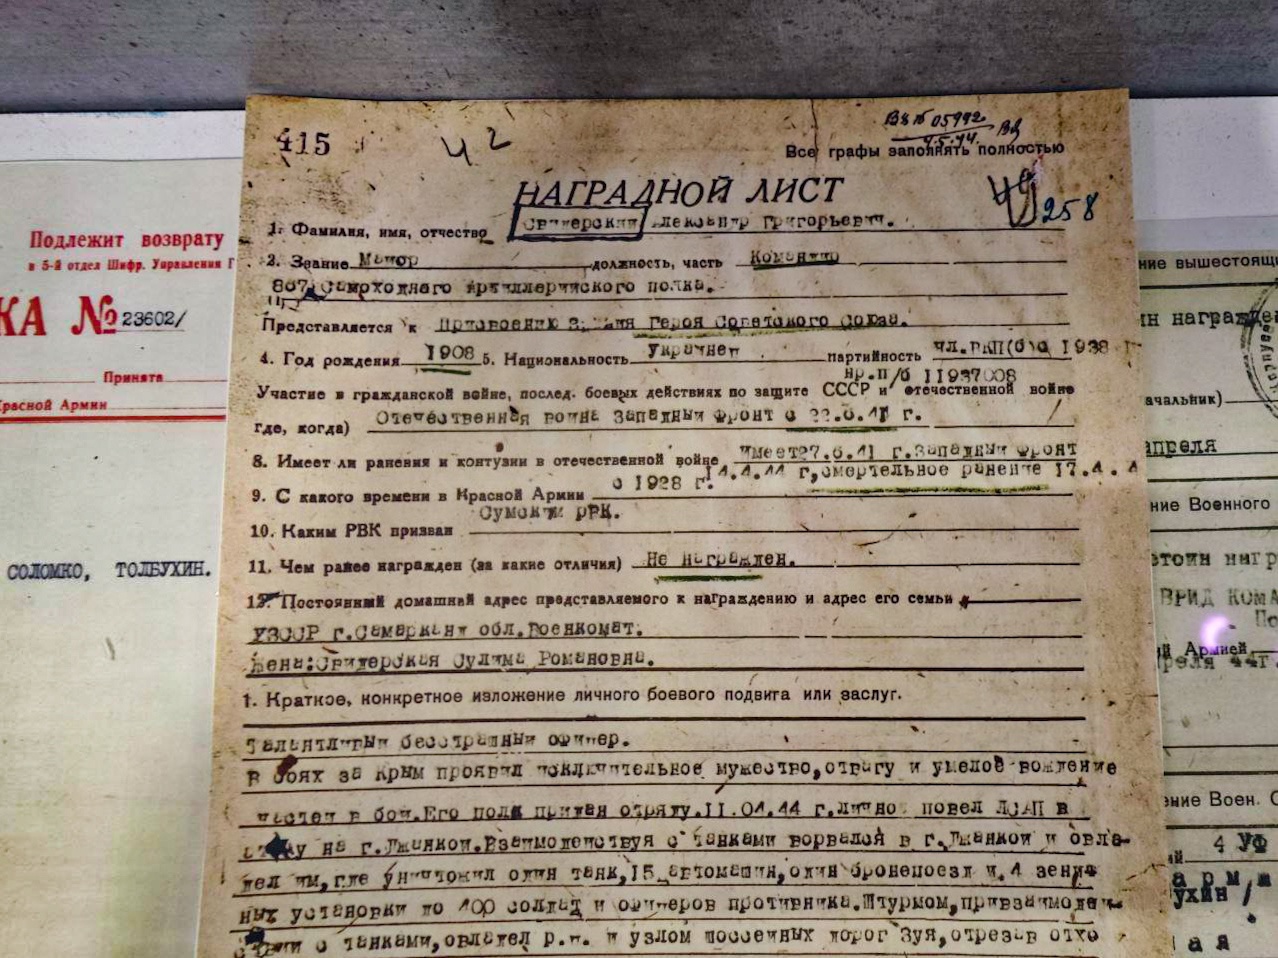 415
42
ВхN 05992
4.5.44.
Все графы заполнять полностью
НАГРАДНОЙ ЛИСТ
258
1. Фамилия, имя, отчество Свидерский Александр Григорьевич.
2. Звание Майор должность, часть Командир
867 Самоходного Артиллерийского полка.
Представляется к Присвоению Звания Героя Советского Союза.
4. Год рождения 1908 5. Национальность Украинец партийность чл.ВКП(б) с 1938
пр.п/б 11937008
Участие в гражданской войне, послед. боевых действиях по защите СССР и отечественной войне
где, когда) Отечественная война Западный Фронт с 22.6.41 г.
8. Имеет ли ранения и контузии в отечественной войне Имеет 27.6.41 г. Западный Фронт
14.4.44 г, смертельное ранение 17.4.4
9. С какого времени в Красной Армии с 1928 г.
10. Каким РВК призван Сумским РВК.
11. Чем ранее награжден (за какие отличия) Не награжден.
12. Постоянный домашний адрес представляемого к награждению и адрес его семьи
УЗССР г.Самарканд обл.Военкомат.
Жена:Свидерская Сулима Романовна.
1. Краткое, конкретное изложение личного боевого подвига или заслуг.
Талантливый бесстрашный офицер.
В боях за Крым проявил исключительное мужество,отвагу и умелое вождение
частей в бой.Его полк придан отряду.11.04.44 г.лично повел ЛСАП в
атаку на г.Джанкой.Взаимодействуя с танками ворвался в г.Джанкой и овла-
дел им,где уничтожил один танк,15 автомашин,один бронепоезд и 4 зенит-
ных установки до 400 солдат и офицеров противника.Штурмом,привзаимодей-
ствии с танками,овладел р.ц. и узлом шоссейных дорог Зуя,отрезав отхо
Подлежит возврату
в 5-й отдел Шифр. Управления Г
КА № 23602/
Принята
Красной Армии
СОЛОМКО, ТОЛБУХИН.
ние вышестоящи
ин награжден
ачальник)
апреля
ние Военного
стоин нагр
ВРИД КОМА
По
й Армией
реля 44г.
ние Воен. С
4 УФ
арми
ухин/
ая